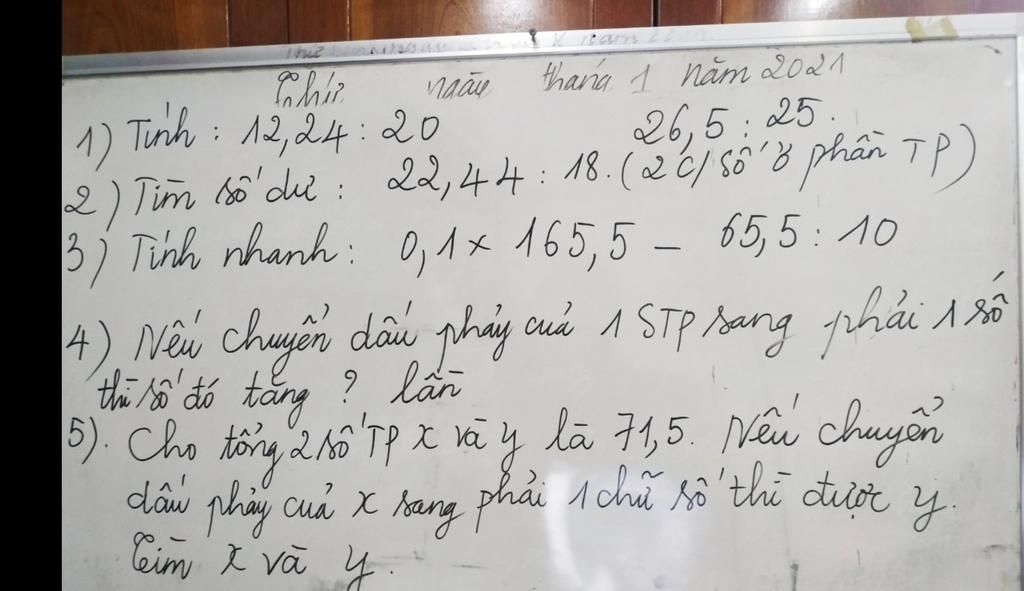 Thứ ngày tháng 1 năm 2021
1) Tính : 12,24 : 20 26,5 : 25.
2) Tìm số dư : 22,44 : 18. (2 c/số ở phần TP)
3) Tính nhanh : 0,1 × 165,5 - 65,5 : 10
4) Nếu chuyển dấu phảy của 1 STP sang phải 1 số
thì số đó tăng ? lần
5). Cho tổng 2 số TP x và y là 71,5. Nếu chuyển
dấu phảy của x sang phải 1 chữ số thì được y.
Tìm x và y.